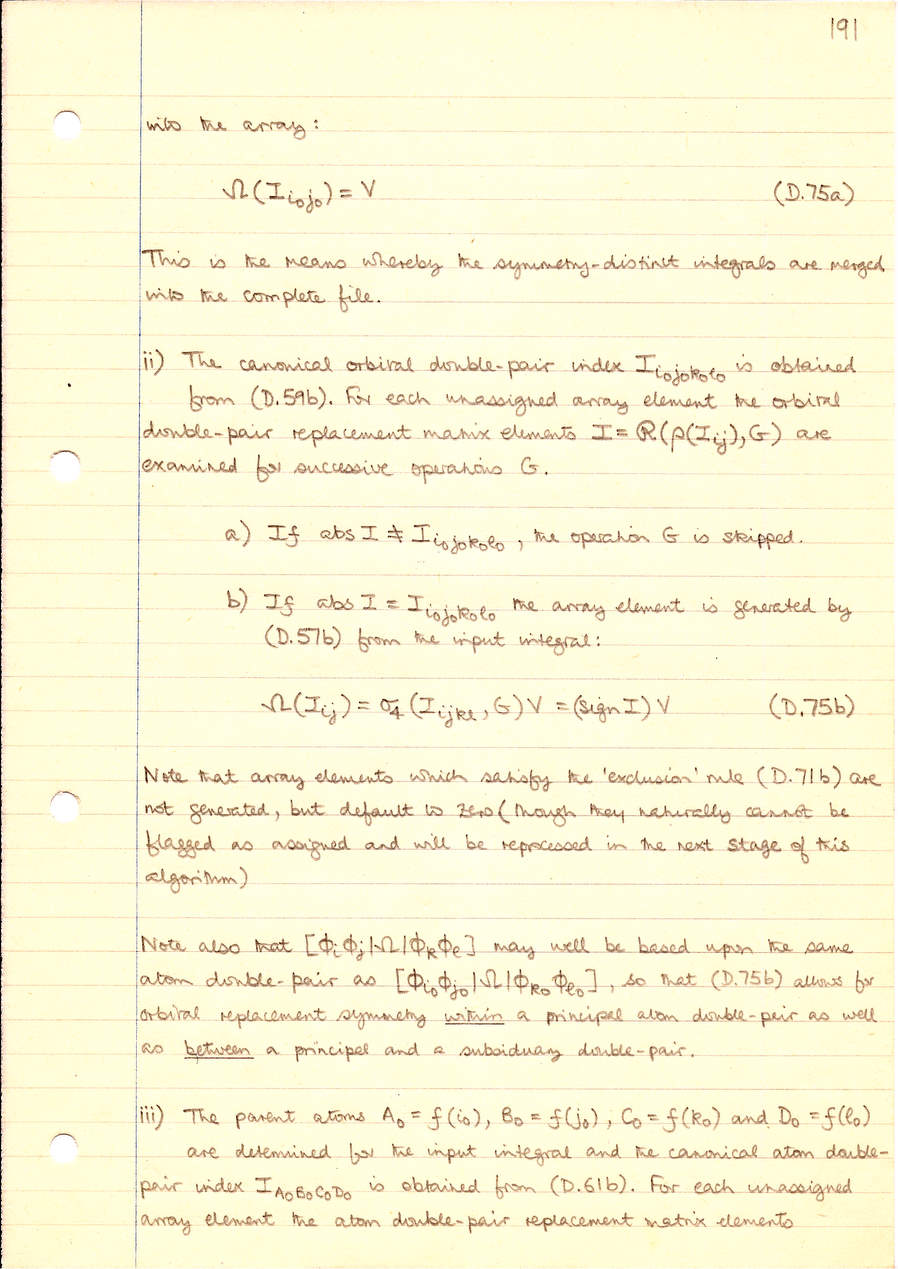 191
into the array:
Ω(I_{i₀j₀}) = V (D.75a)
This is the means whereby the symmetry-distinct integrals are merged
into the complete file.
ii) The canonical orbital double-pair index I_{i₀j₀k₀l₀} is obtained
from (D.59b). For each unassigned array element the orbital
double-pair replacement matrix elements I = ℝ(ρ(I_{ij}), G) are
examined for successive operations G.
a) If abs I ≠ I_{i₀j₀k₀l₀}, the operation G is skipped.
b) If abs I = I_{i₀j₀k₀l₀} the array element is generated by
(D.57b) from the input integral:
Ω(I_{ij}) = σ₄(I_{ijkl}, G) V = (sign I) V (D.75b)
Note that array elements which satisfy the 'exclusion' rule (D.71b) are
not generated, but default to zero (though they naturally cannot be
flagged as assigned and will be reprocessed in the next stage of this
algorithm)
Note also that [ϕ_iϕ_j|Ω|ϕ_kϕ_l] may well be based upon the same
atom double-pair as [ϕ_{i₀}ϕ_{j₀}|Ω|ϕ_{k₀}ϕ_{l₀}], so that (D.75b) allows for
orbital replacement symmetry within a principal atom double-pair as well
as between a principal and a subsiduary double-pair.
iii) The parent atoms A₀ = f(i₀), B₀ = f(j₀), C₀ = f(k₀) and D₀ = f(l₀)
are determined for the input integral and the canonical atom double-
pair index I_{A₀B₀C₀D₀} is obtained from (D.61b). For each unassigned
array element the atom double-pair replacement matrix elements